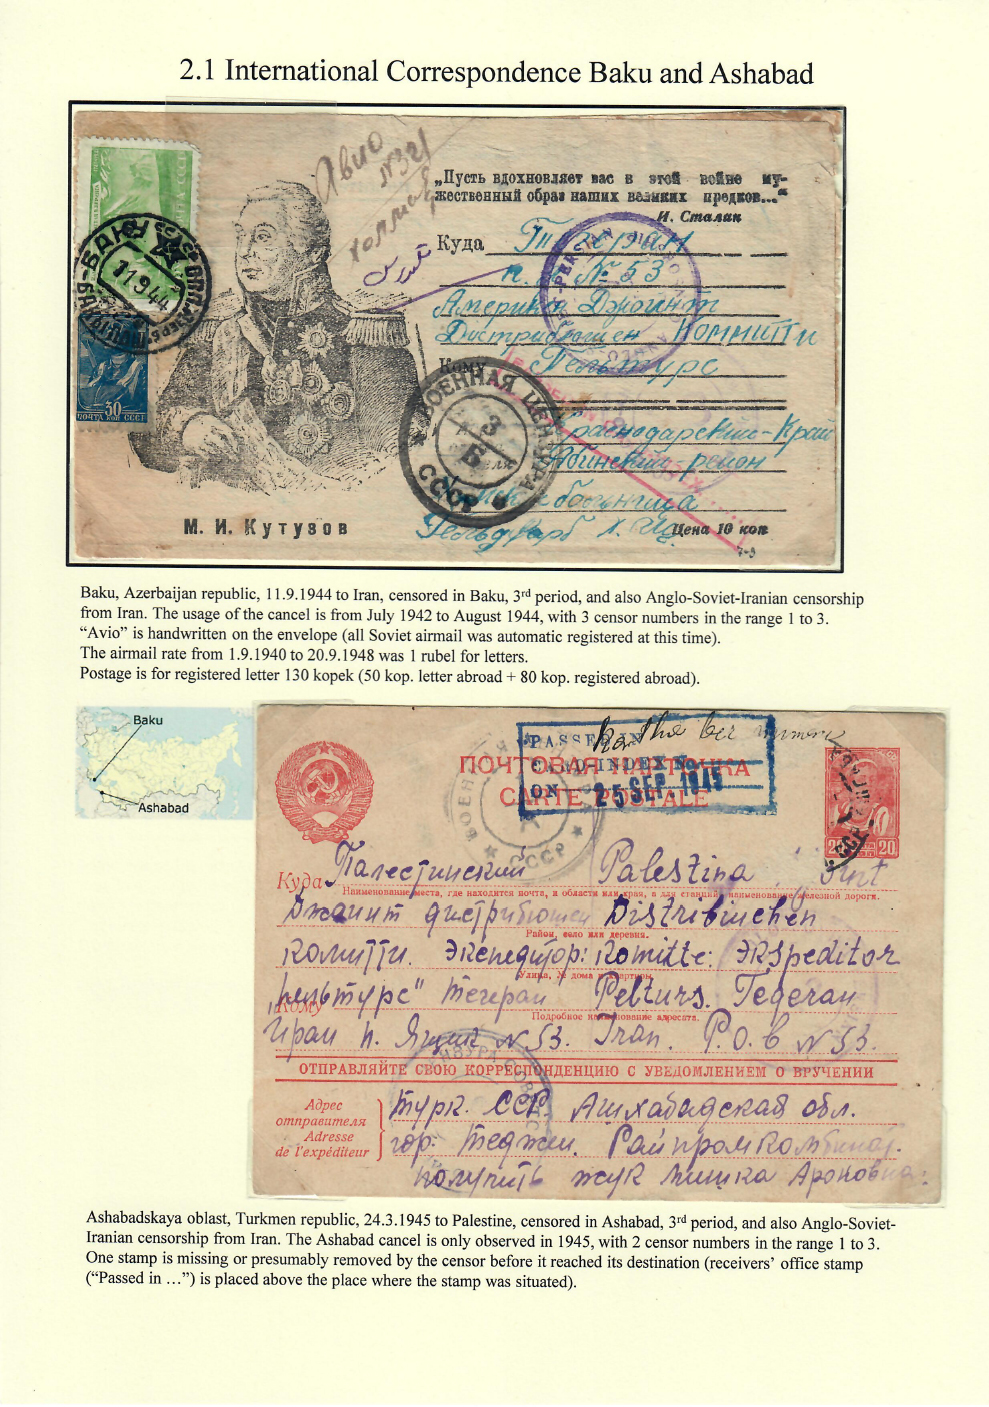 2.1 International Correspondence Baku and Ashabad
Авио
N321
„Пусть вдохновляет вас в этой войне му-
жественный образ наших великих предков..."
И. Сталин
Куда Тегеран
п. № 53
Америка Джоинт
Дистрибюшен Коммитти
Кому Пельтурс
Краснодарский-Край
Абинский-район
БАКУ
11 9 44
PERSIAN
30
ПОЧТА КОП СССР
ВОЕННАЯ ЦЕНЗУРА
СССР
3
Б
М. И. Кутузов
Цена 10 коп
7-3
Baku, Azerbaijan republic, 11.9.1944 to Iran, censored in Baku, 3rd period, and also Anglo-Soviet-Iranian censorship
from Iran. The usage of the cancel is from July 1942 to August 1944, with 3 censor numbers in the range 1 to 3.
“Avio” is handwritten on the envelope (all Soviet airmail was automatic registered at this time).
The airmail rate from 1.9.1940 to 20.9.1948 was 1 rubel for letters.
Postage is for registered letter 130 kopek (50 kop. letter abroad + 80 kop. registered abroad).
Baku
Ashabad
PASSED IN
CARD INDEX No
ON 25 SEP. 1945
ПОЧТОВАЯ КАРТОЧКА
CARTE POSTALE
20
СССР
Куда Палестинский Palestina
Наименование места, где находится почта, и области или края, а для станций наименование железной дороги.
Джаинт дистрибюшен Distribinchen
Район, село или деревня.
комитти. Экспедитор: Komitte: Ekspeditor
Улица, № дома и квартиры.
Кому „Пельтурс" Тегеран Pelturs. Tegeran
Подробное наименование адресата.
Иран п. Ящик N 53. Iran. P.O.b N 53.
ОТПРАВЛЯЙТЕ СВОЮ КОРРЕСПОНДЕНЦИЮ С УВЕДОМЛЕНИЕМ О ВРУЧЕНИИ
Адрес
отправителя
Adresse
de l'expéditeur
Турк. ССР Ашхабадская обл.
гор. Теджен. Райпромкомбинат.
получить жук Мишка Ароновна.
Ashabadskaya oblast, Turkmen republic, 24.3.1945 to Palestine, censored in Ashabad, 3rd period, and also Anglo-Soviet-
Iranian censorship from Iran. The Ashabad cancel is only observed in 1945, with 2 censor numbers in the range 1 to 3.
One stamp is missing or presumably removed by the censor before it reached its destination (receivers’ office stamp
(“Passed in …”) is placed above the place where the stamp was situated).